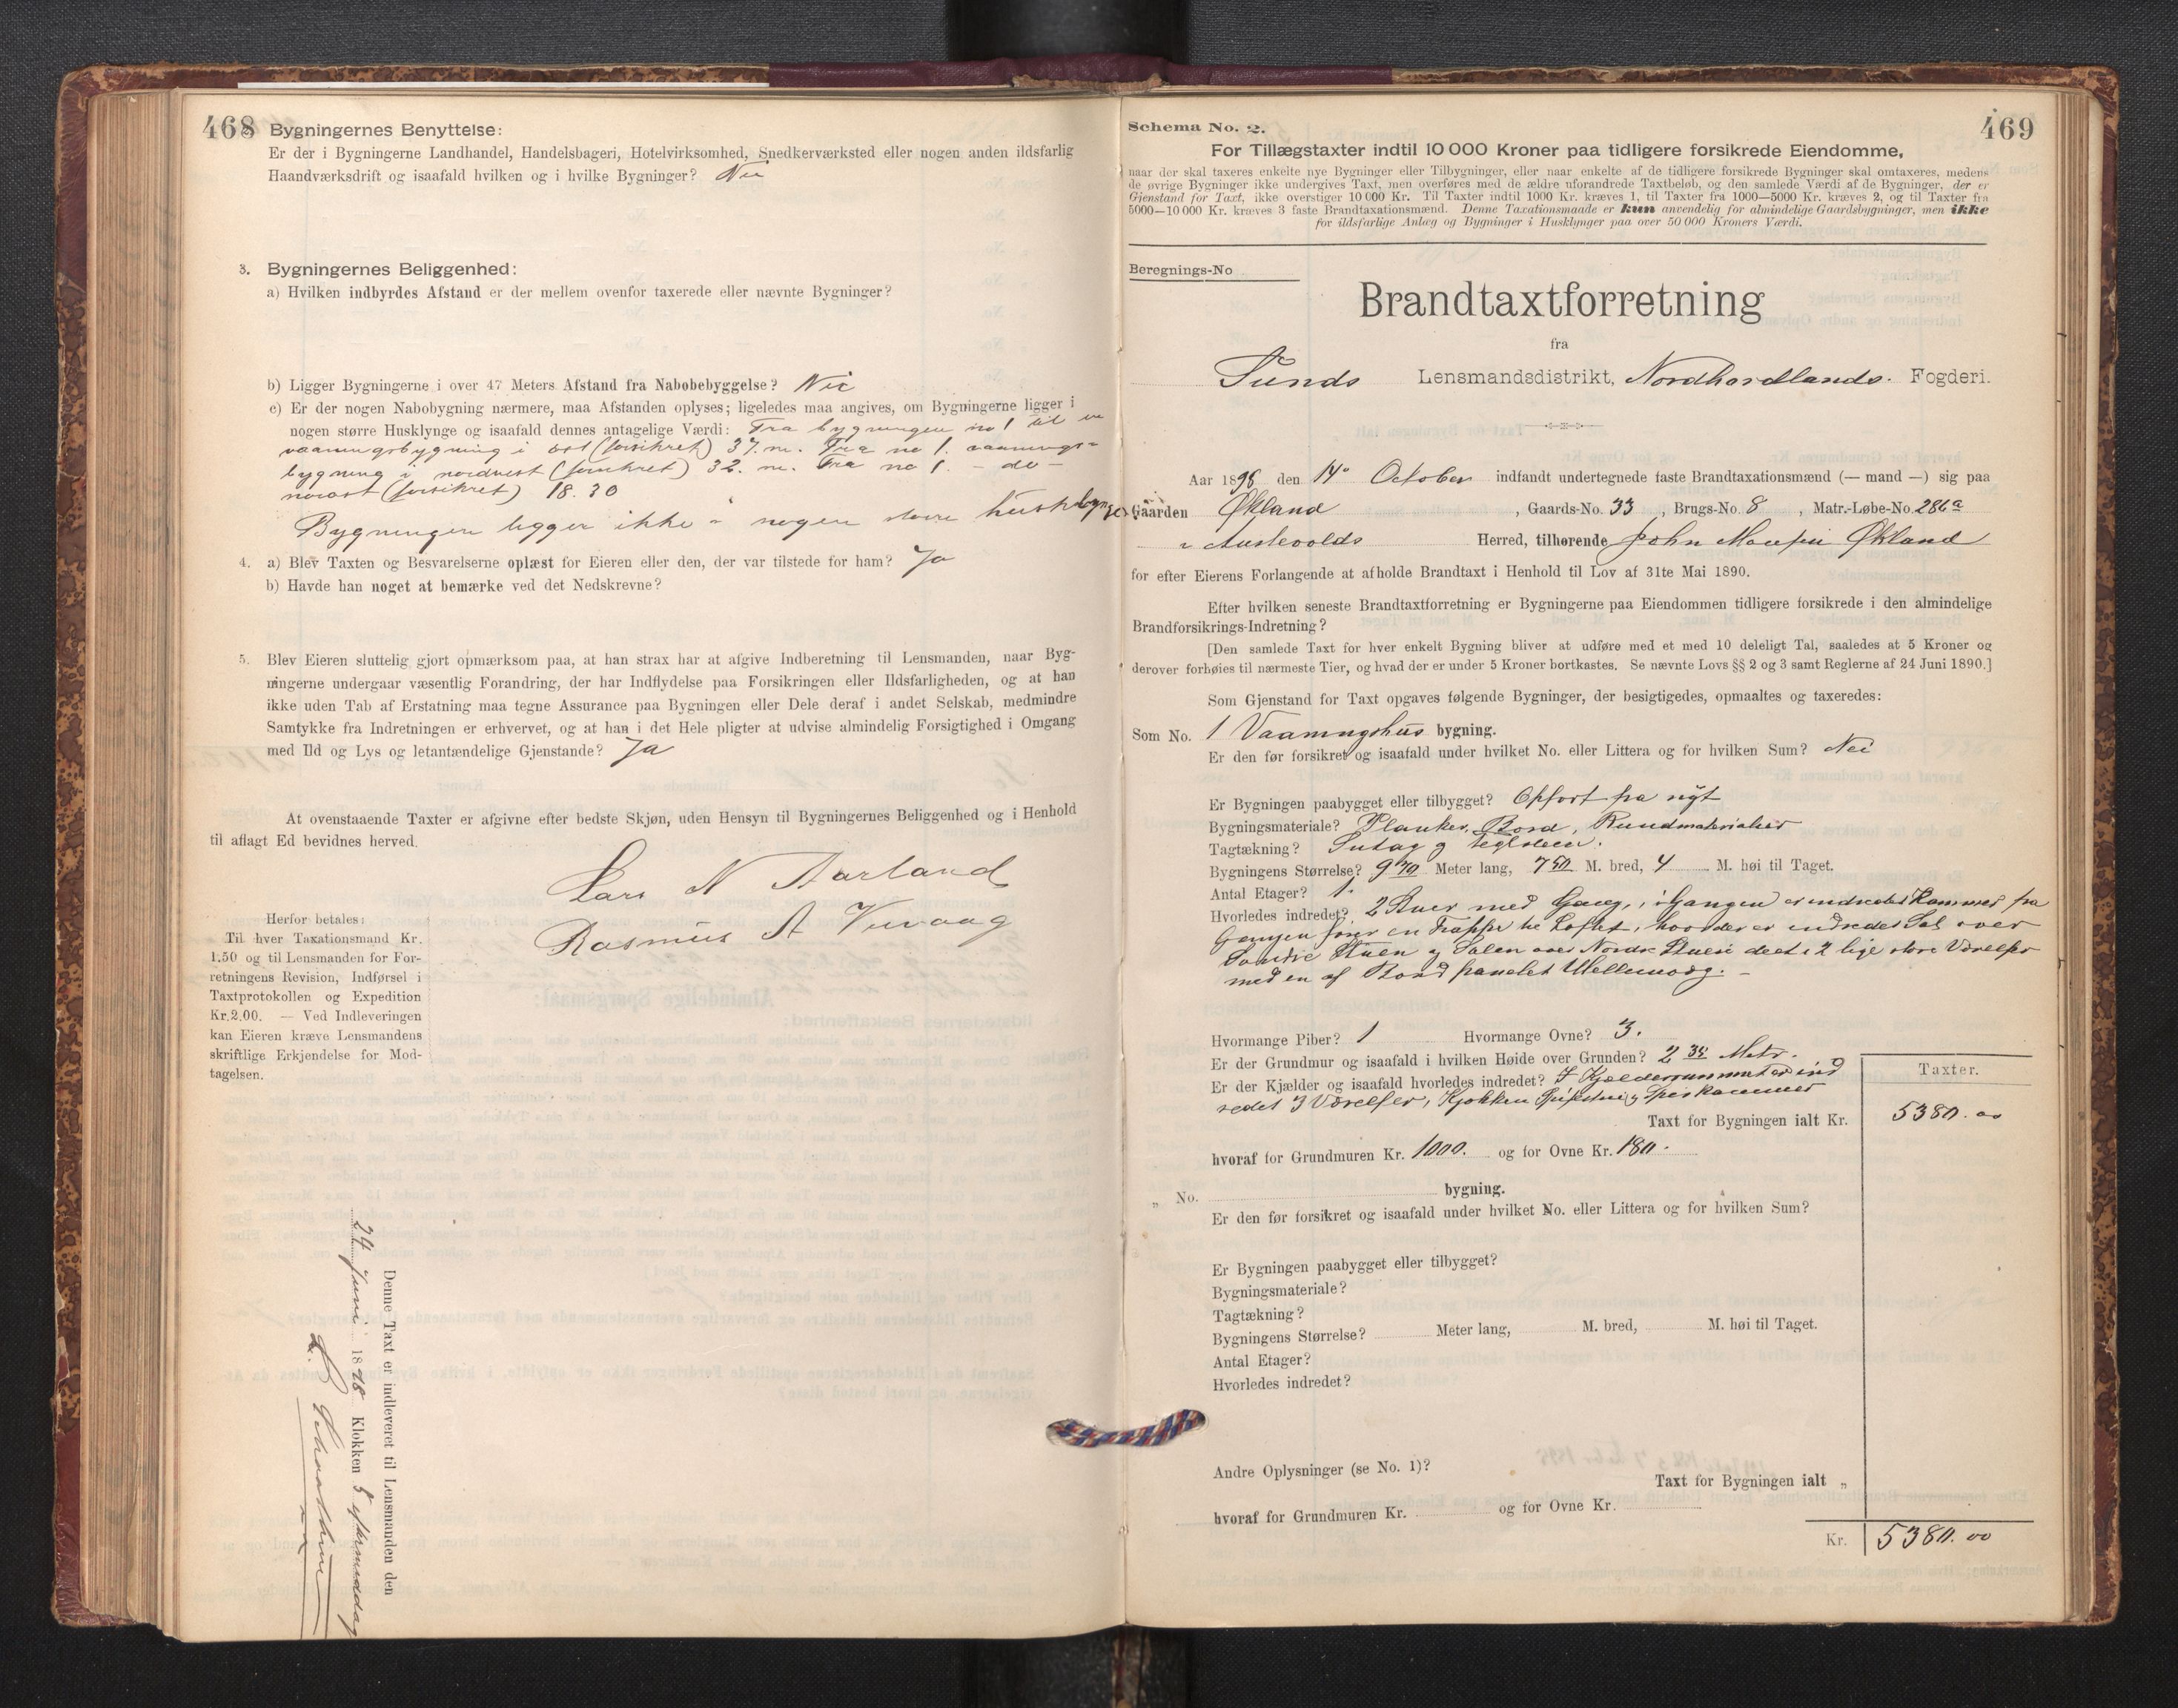 468
Bygningernes Benyttelse:
Er der i Bygningerne Landhandel, Handelsbageri, Hotelvirksomhed, Snedkerværksted eller nogen anden ildsfarlig
Haandværksdrift og isaafald hvilken og i hvilke Bygninger? Nei
3. Bygningernes Beliggenhed:
a) Hvilken indbyrdes Afstand er der mellem ovenfor taxerede eller nævnte Bygninger?
b) Ligger Bygningerne i over 47 Meters Afstand fra Nabobebyggelse? Nei
c) Er der nogen Nabobygning nærmere, maa Afstanden oplyses; ligeledes maa angives, om Bygningerne ligger i
nogen større Husklynge og isaafald dennes antagelige Værdi: Fra bygningen no 1 til en
vaaningsbygning i ost (forsikret) 37. m. Fra no 1. vaanings-
bygning i nordvest (forsikret) 32. m. Fra no 1. - do -
norost (forsikret) 18.30
Bygningen ligger ikke i nogen store
4. a) Blev Taxten og Besvarelserne oplæst for Eieren eller den, der var tilstede for ham? Ja
b) Havde han noget at bemærke ved det Nedskrevne?
5. Blev Eieren sluttelig gjort opmærksom paa, at han strax har at afgive Indberetning til Lensmanden, naar Byg-
ningerne undergaar væsentlig Forandring, der har Indflydelse paa Forsikringen eller Ildsfarligheden, og at han
ikke uden Tab af Erstatning maa tegne Assurance paa Bygningen eller Dele deraf i andet Selskab, medmindre
Samtykke fra Indretningen er erhvervet, og at han i det Hele pligter at udvise almindelig Forsigtighed i Omgang
med Ild og Lys og letantændelige Gjenstande? Ja
At ovenstaaende Taxter er afgivne efter bedste Skjøn, uden Hensyn til Bygningernes Beliggenhed og i Henhold
til aflagt Ed bevidnes herved.
Lars N Aarland
Rasmus A Vevaag
Herfor betales:
Til hver Taxationsmand Kr.
1.50 og til Lensmanden for For-
retningens Revision, Indførsel i
Taxtprotokollen og Expedition
Kr. 2.00. — Ved Indleveringen
kan Eieren kræve Lensmandens
skriftlige Erkjendelse for Mod-
tagelsen.
Denne Taxt er indleveret til Lensmanden den
24 Juni 1898 Klokken 5 eftermiddag
469
Schema No. 2.
For Tillægstaxter indtil 10 000 Kroner paa tidligere forsikrede Eiendomme,
naar der skal taxeres enkelte nye Bygninger eller Tilbygninger, eller naar enkelte af de tidligere forsikrede Bygninger skal omtaxeres, medens
de øvrige Bygninger ikke undergives Taxt, men overføres med de ældre uforandrede Taxtbeløb, og den samlede Værdi af de Bygninger, der er
Gjenstand for Taxt, ikke overstiger 10 000 Kr. Til Taxter indtil 1000 Kr. kræves 1, til Taxter fra 1000—5000 Kr. kræves 2, og til Taxter fra
5000—10 000 Kr. kræves 3 faste Brandtaxationsmænd. Denne Taxationsmaade er kun anvendelig for almindelige Gaardsbygninger, men ikke
for ildsfarlige Anlæg og Bygninger i Husklynger paa over 50 000 Kroners Værdi.
Beregnings-No
Brandtaxtforretning
fra
Sunds Lensmandsdistrikt, Nordhordlands Fogderi.
Aar 1898 den 14 October indfandt undertegnede faste Brandtaxationsmænd (— mand —) sig paa
Gaarden Økland, Gaards-No. 33, Brugs-No. 8, Matr.-Løbe-No. 286a
i Austevolds Herred, tilhørende John Økland
for efter Eierens Forlangende at afholde Brandtaxt i Henhold til Lov af 31te Mai 1890.
Efter hvilken seneste Brandtaxtforretning er Bygningerne paa Eiendommen tidligere forsikrede i den almindelige
Brandforsikrings-Indretning?
[Den samlede Taxt for hver enkelt Bygning bliver at udføre med et med 10 deleligt Tal, saaledes at 5 Kroner og
derover forhøies til nærmeste Tier, og hvad der er under 5 Kroner bortkastes. Se nævnte Lovs §§ 2 og 3 samt Reglerne af 24 Juni 1890.]
Som Gjenstand for Taxt opgaves følgende Bygninger, der besigtigedes, opmaaltes og taxeredes:
Som No. 1 Vaaningshus bygning.
Er den før forsikret og isaafald under hvilket No. eller Littera og for hvilken Sum? Nei
Er Bygningen paabygget eller tilbygget? Opfort fra nyt
Bygningsmateriale? Planker, Bord, Rundmaterialier
Tagtækning? Sutag og teglsteen.
Bygningens Størrelse? 9 70 Meter lang, 7 50 M. bred, 4 M. høi til Taget.
Antal Etager? 1.
Hvorledes indredet? 2 Stuer med Gang, i Gangen er indredet Kammer fra
Gangen fører en Trappe til Loftet, hvor der er indredet Sal over
Søndre Stuen og Salen over Nordre Stuen deelt i 2 lige store Værelser
med en af Bord panelet Mellemvæg.
Hvormange Piber? 1 Hvormange Ovne? 3.
Er der Grundmur og isaafald i hvilken Høide over Grunden? 2 35 Metr.
Er der Kjælder og isaafald hvorledes indredet? I Kjælderrummet er ind
redet 3 Værelser, Kjøkken Spisestue og Spiskammer
Taxter.
Taxt for Bygningen ialt Kr. 5380.00
hvoraf for Grundmuren Kr. 1000. og for Ovne Kr. 180.
„ No. bygning.
Er den før forsikret og isaafald under hvilket No. eller Littera og for hvilken Sum?
Er Bygningen paabygget eller tilbygget?
Bygningsmateriale?
Tagtækning?
Bygningens Størrelse? Meter lang, M. bred, M. høi til Taget.
Antal Etager?
Hvorledes indredet?
Andre Oplysninger (se No. 1)?
Taxt for Bygningen ialt „
hvoraf for Grundmuren Kr. og for Ovne Kr.
Kr. 5380.00